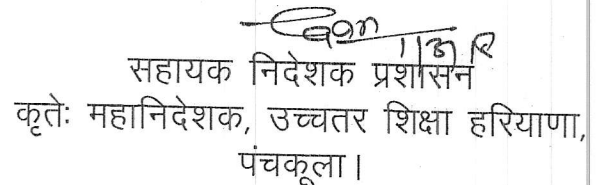 सहायक निदेशक प्रशासन
कृतेः महानिदेशक, उच्चतर शिक्षा हरियाणा,
पंचकूला।